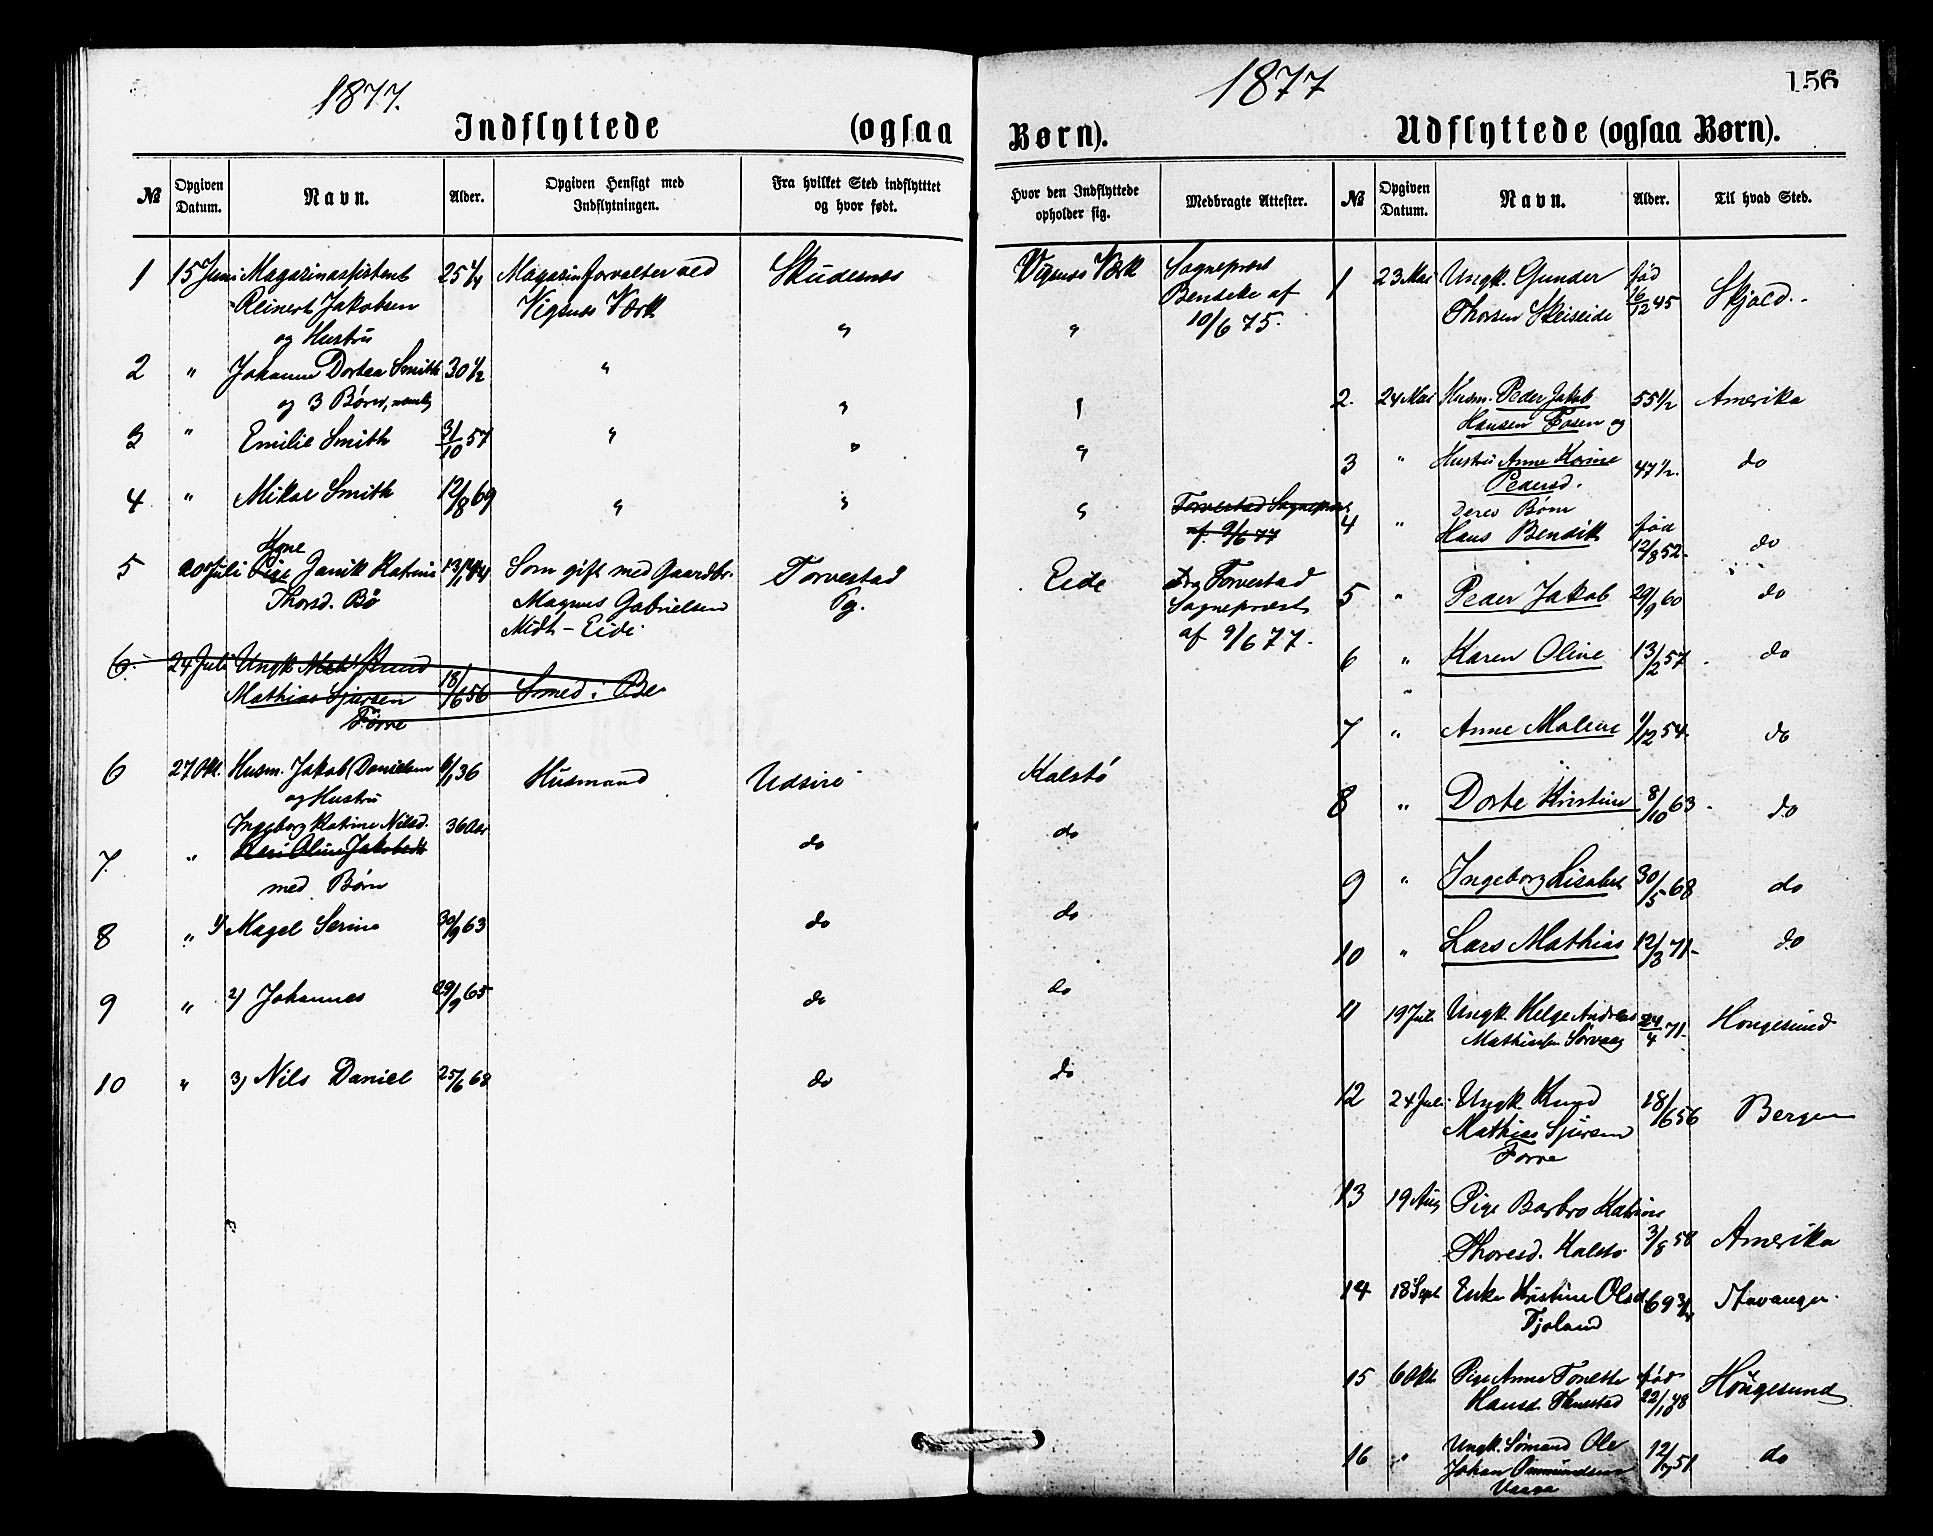 1877.
Indflyttede (ogsaa
№ Opgiven Datum. Navn. Alder. Opgiven Hensigt med Indflytningen. Fra hvilket Sted indflytttet og hvor født.
1 15 Juni Magasinassistent 25 1/4 Magasinforvalter ved Skudesnes
Reinert Jakobsen Vigsnes Værk
og Hustru "
2 " Johanne Dortea Smith 30 1/2 "
og 3 Børn, nemlig "
3 " Emilie Smith 31/10 57 " "
4 " Mikal Smith 12/8 69 " "
Kone
5 20 Juli Pige Janik Katrine 13/1 44 Som gift med Gaardbr. Torvestad
Thorsd. Bø Magnus Gabrielsen Pg.
Midt-Eide
6. 24 Juli Ungk. Knud
Mathias Sjursen 18/6 56 Smed i Be
Førre
6 27 Okt. Husm. Jakob Danielsen 6/1 36 Husmand Udsire
og Hustru
Ingeborg Katrine Nilsd. 36 Aar
7. " Oline Jakobsdt do
med Børn
8 " 1) Magel Serine 30/9 63 do
9 " 2) Johannes 29/9 65 do
10 " 3) Nils Daniel 25/6 68 do
1877
156
Børn). Udflyttede (ogsaa Børn).
Hvor den Indflyttede opholder sig. Medbragte Attester. № Opgiven Datum. Navn. Alder. Til hvad Sted.
Vigsnes Værk Sognepræst 1 23 Mai Ungk. Gunder fød Skjold.
Bendeke af Thorsen Skeiseide 16/12 45
" 10/6 75.
" 2. 24 Mai Husm. Peder Jakob 55 1/2 Amerika
Hansen Fosen og
" 3 " Hustru Anne Karine 47 1/2. do
Pedersd.
" Torvestad Sognepræst deres Børn
af 9/6 77 4 " Hans Bendik fød 12/8 52. do
Eide Fra Torvestad
Sognepræst 5 " Peder Jakob 29/9 60 do
af 9/6 77. 6 " Karen Oline 13/2 57. do
7 " Anne Malene 1/12 54. do
Kalstø 8 " Dorte Kristine 8/10 63. do
do
9 " Ingeborg Lisabet 30/5 68 do
do
10 " Lars Mathias 12/3 71. do
do 11 19 Juli Ungk. Helge Andreas 24/4 71. Hougesund
Mathiassen Sørvaag
do 12 24 Juli Ungk. Knud 18/6 56 Bergen
Mathias Sjursen
Førre
13 19 Aug Pige Barbro Katrine
Thoresd. Kalstø 3/8 58 Amerika
14 18 Sept Enke Kristine Olsd 69 3/4 Stavanger.
Tjoland
15 6 Okt. Pige Anne Tonette fød Hougesund
Hansd. 22/10 48
16 " Ungk. Sømand Ole 12/7 51 do
Johan Ommundsen
Vaage